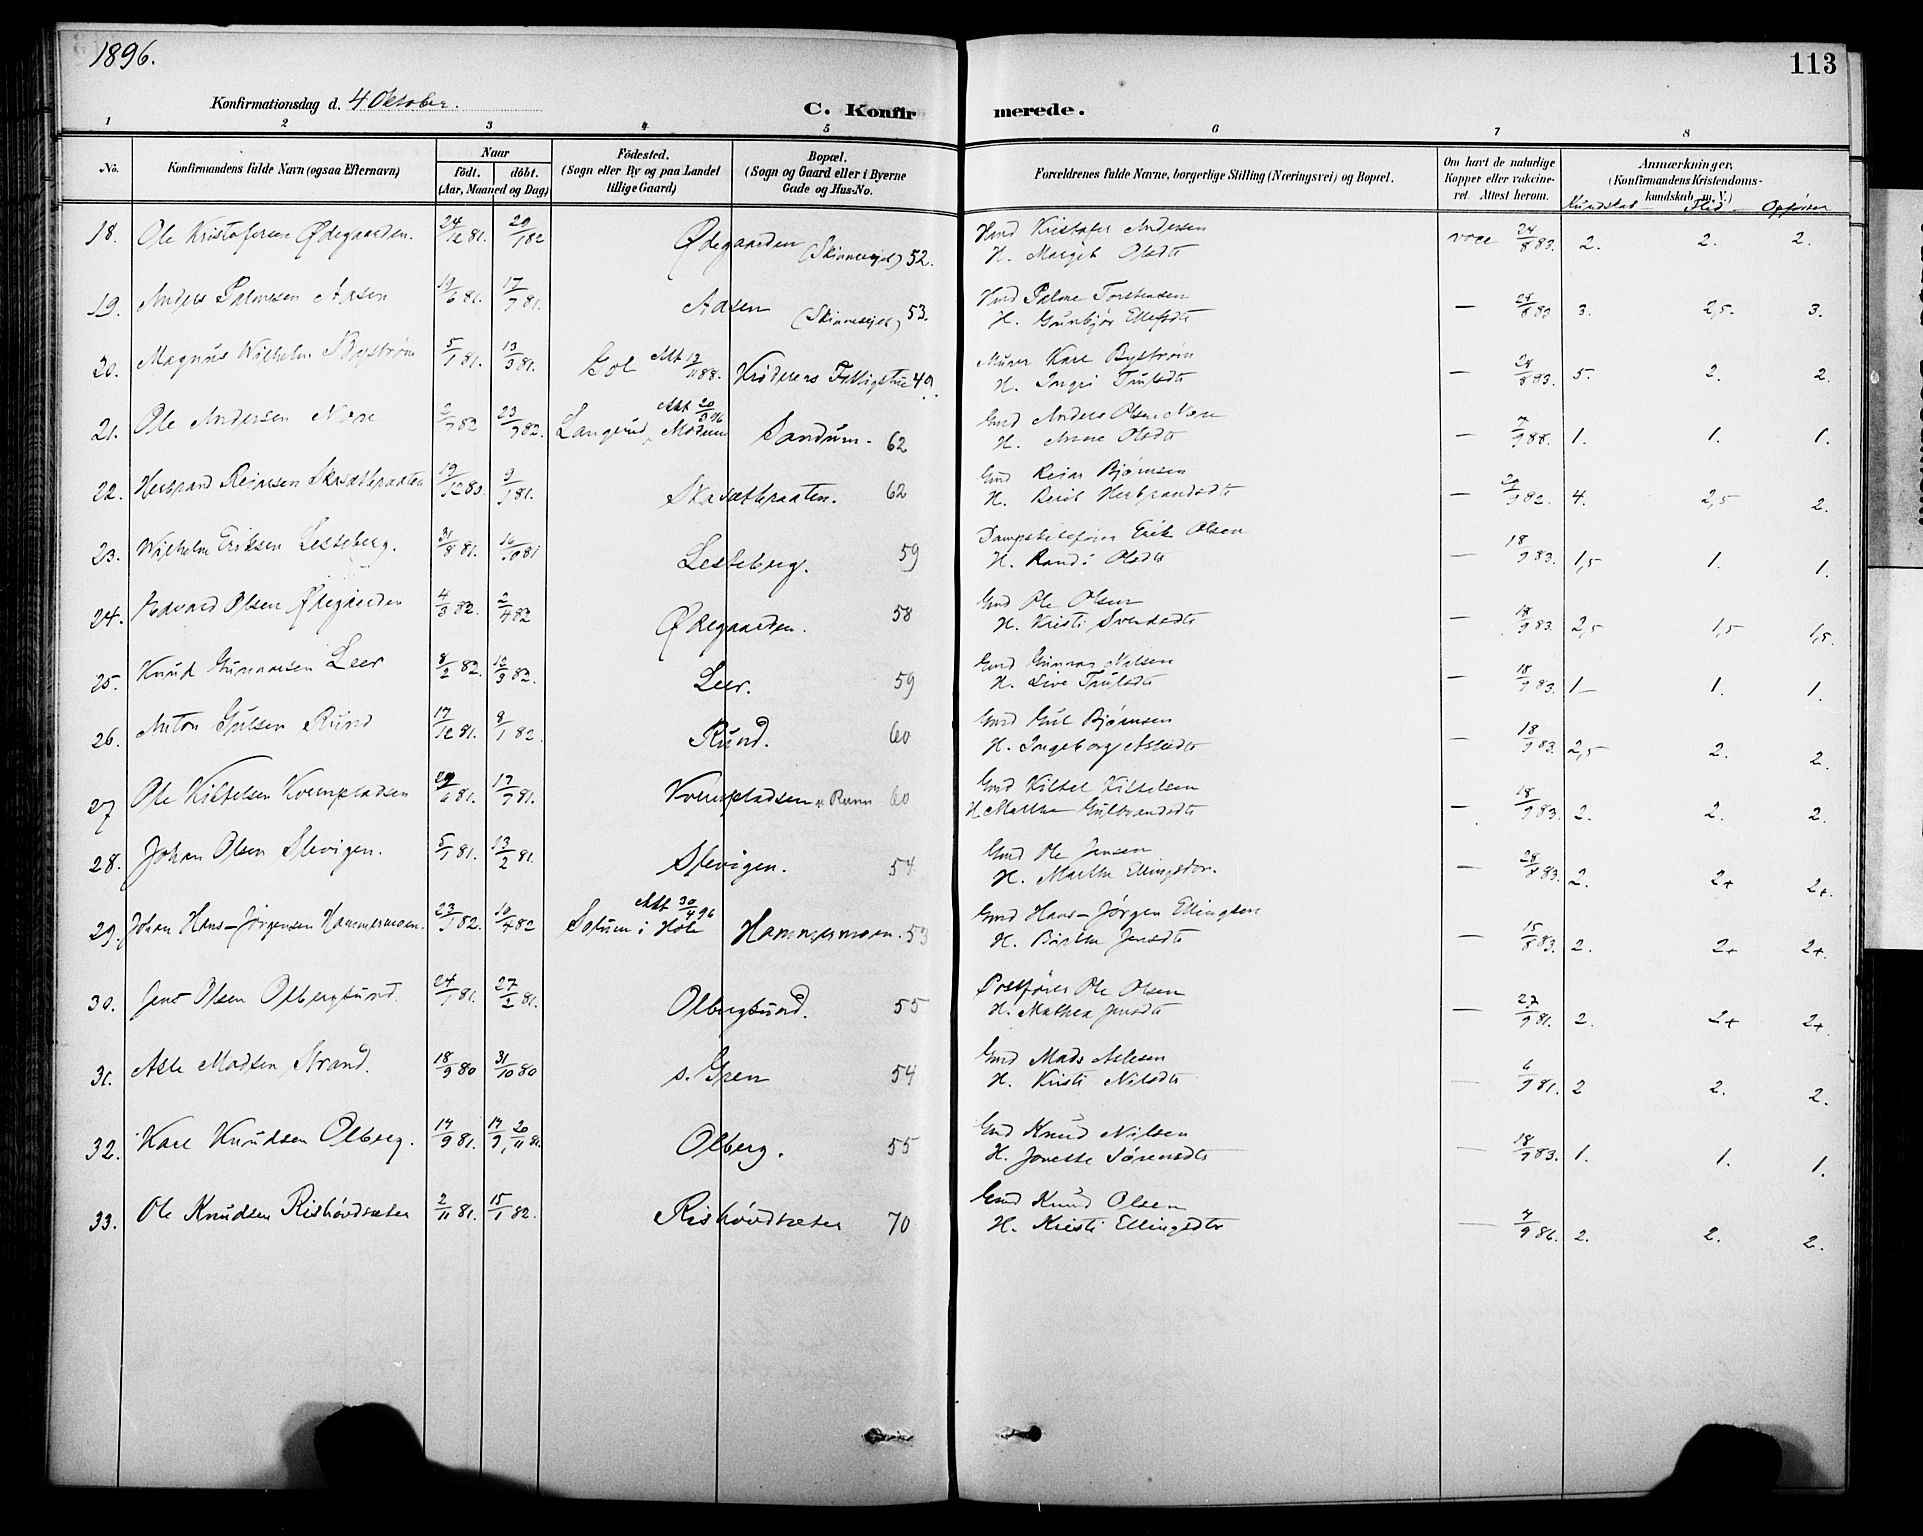 1896.
113
Konfirmationsdag d. 4 Oktober.
C. Konfirmerede.
1 2 3 4 5 6 7 8
No. Konfirmandens fulde Navn (ogsaa Efternavn) Naar födt. döbt. (Aar, Maaned og Dag) Födested. (Sogn eller By og paa Landet tillige Gaard) Bopæl. (Sogn og Gaard eller i Byerne Gade og Hus-No. Forældrenes fulde Navne, borgerlige Stilling (Næringsvei) og Bopæl. Om havt de naturlige Kopper eller vakcineret. Attest herom. Anmærkninger, (Konfirmandens Kristendomskundskab m. V.)
Kundskab Flid Opførsel
18. Ole Kristofersen Ødegaarden. 24/12 81. 29/1 82 Ødegaarden (Skinnesejel) 52. Gmd Kristofer Andersen vacc 24/8 83. 2. 2. 2.
H. Margit Olsdtr
19. Anders Palmesen Aasen 19/6 81. 17/7 81. Aasen (Skinnesejel) 53. Gmd Palme Torstensen — 24/8 83 3. 2,5. 3.
H. Gunbjør Ellefsdtr
20. Magnus Wilhelm Bystrøm 5/1 81. 13/3 81. Gol Att 12/11 88. Krøderens Fattigstue 49. Murer Karl Bystrøm — 24/8 83. 5. 2. 2.
H. Ingri Trulsdtr
21. Ole Andersen Næve 2/7 82 23/7 82. Langerud, Modum Att 20/3 96 Sandum. 62 Gmd Anders Olsen Næve — 7/9 88. 1. 1. 1.
H. Anne Olsdtr
22. Herbrand Reiersen Skasethbraaten 19/12 80. 9/1 81. Skasethbraaten. 62 Gmd Reier Bjørnsen — 29/9 82. 4. 2,5 2.
H. Berit Herbrandsdtr
23. Wilhelm Eriksen Lesteberg. 31/8 81. 16/10 81 Lesteberg. 59 Erik Olsen — 18/9 83. 1,5 1. 1.
H. Randi Olsdtr
24. Edvard Olsen Ødegaarden 4/3 82. 2/4 82 Ødegaarden. 58 Gmd Ole Olsen — 18/9 83. 2,5 1,5 1,5.
H. Kristi Svendsdtr
25. Knud Gunnarsen Leer 8/2 82. 12/3 82. Leer. 59 Gmd Gunnar Nilsen — 18/9 83. 1— 1. 1.
H. Live Trulsdtr
26. Anton Gulsen Rund 17/12 81. 8/1 82. Rund. 60 Gmd Gul Bjørnsen — 18/9 83. 2,5 2. 2.
H. Ingeborg Aslesdtr
27 Ole Kittelsen Kvernpladsen 29/6 81. 17/7 81. Kvernpladsen u. Ramm 60 Gmd Kittel Kittelsen — 18/9 83. 2. 2. 2.
H. Marthe Gulbrandsdtr
28. Johan Olsen Slevigen. 5/1 81. 13/2 81. Slevigen. 54 Gmd Ole Jensen — 28/8 83. 2. 2+ 2+.
H. Marthe Ellingsdtr.
29. Johan Hans-Jørgensen Hammermoen. 23/1 82. 10/4 82 Solum i Hole Att 30/4 96 Hammermoen. 53 Gmd Hans-Jørgen Ellingsen — 15/8 83. 2. 2+ 2+.
H. Berthe Jensdtr
30. Jens Olsen Olbergsund. 24/1 81. 27/2 81. Olbergsund. 55 Postfører Ole Olsen — 27/9 81. 2. 2+ 2+.
H. Mathea Jensdtr
31. Asle Madsen Strand. 18/9 80 31/10 80 s. Gren 54 Gmd Mads Aslesen — 6/9 81. 2 2. 2.
H. Kristi Nilsdtr
32. Karl Knudsen Olberg. 14/9 81. 14/9, 20/11 81. Olberg. 55 Gmd Knud Nilsen — 18/9 83. 1. 1. 1.
H. Jonette Sørensdtr
33. Ole Knudsen Rishøvdsæter 2/11 81. 15/1 82. Rishøvdsæter 70 Gmd Knud Olsen — 7/9 86. 2. 2. 2.
H. Kristi Ellingsdtr